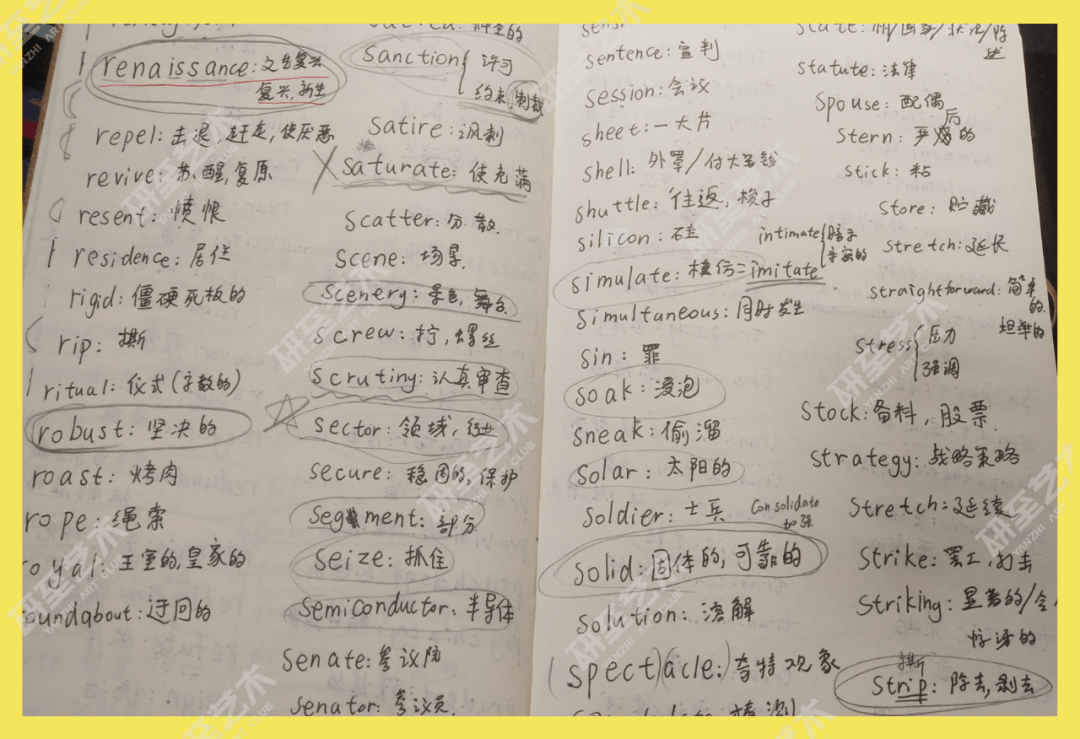 renaissance: 文艺复兴
复兴, 新生
repel: 击退, 赶走, 使厌恶
revive: 苏醒, 复原
resent: 愤恨
residence: 居住
rigid: 僵硬死板的
rip: 撕
ritual: 仪式(宗教的)
robust: 坚决的
roast: 烤肉
rope: 绳索
royal: 王室的, 皇家的
oundabout: 迂回的
sanction 许可
约束, 制裁
satire: 讽刺
saturate: 使充满
scatter: 分散
scene: 场景
scenery: 景色, 舞台
screw: 拧, 螺丝
scrutiny: 认真审查
sector: 领域, 行业
secure: 稳固的, 保护
segment: 部分
seize: 抓住
semiconductor: 半导体
senate: 参议院
senator: 参议员
sentence: 宣判
session: 会议
sheet: 一大片
shell: 外罩/付大笔钱
shuttle: 往返, 梭子
silicon: 硅
intimate 暗示
亲密的
simulate: 模仿 = imitate
simultaneous: 同时发生
sin: 罪
soak: 浸泡
sneak: 偷溜
solar: 太阳的
soldier: 士兵
consolidate
加强
solid: 固体的, 可靠的
solution: 溶解
spectacle: 奇特观象
state: 州/国家/状况/陈述
statute: 法律
spouse: 配偶
stern: 严厉的
后
stick: 粘
store: 贮藏
stretch: 延长
straightforward: 简单的
坦率的
stress 压力
强调
stock: 备料, 股票
strategy: 战略策略
stretch: 延续
strike: 罢工, 打击
striking: 显著的/令
惊讶的
撕
strip: 除去, 剥去
研至艺术
YANZHI ART CLUB